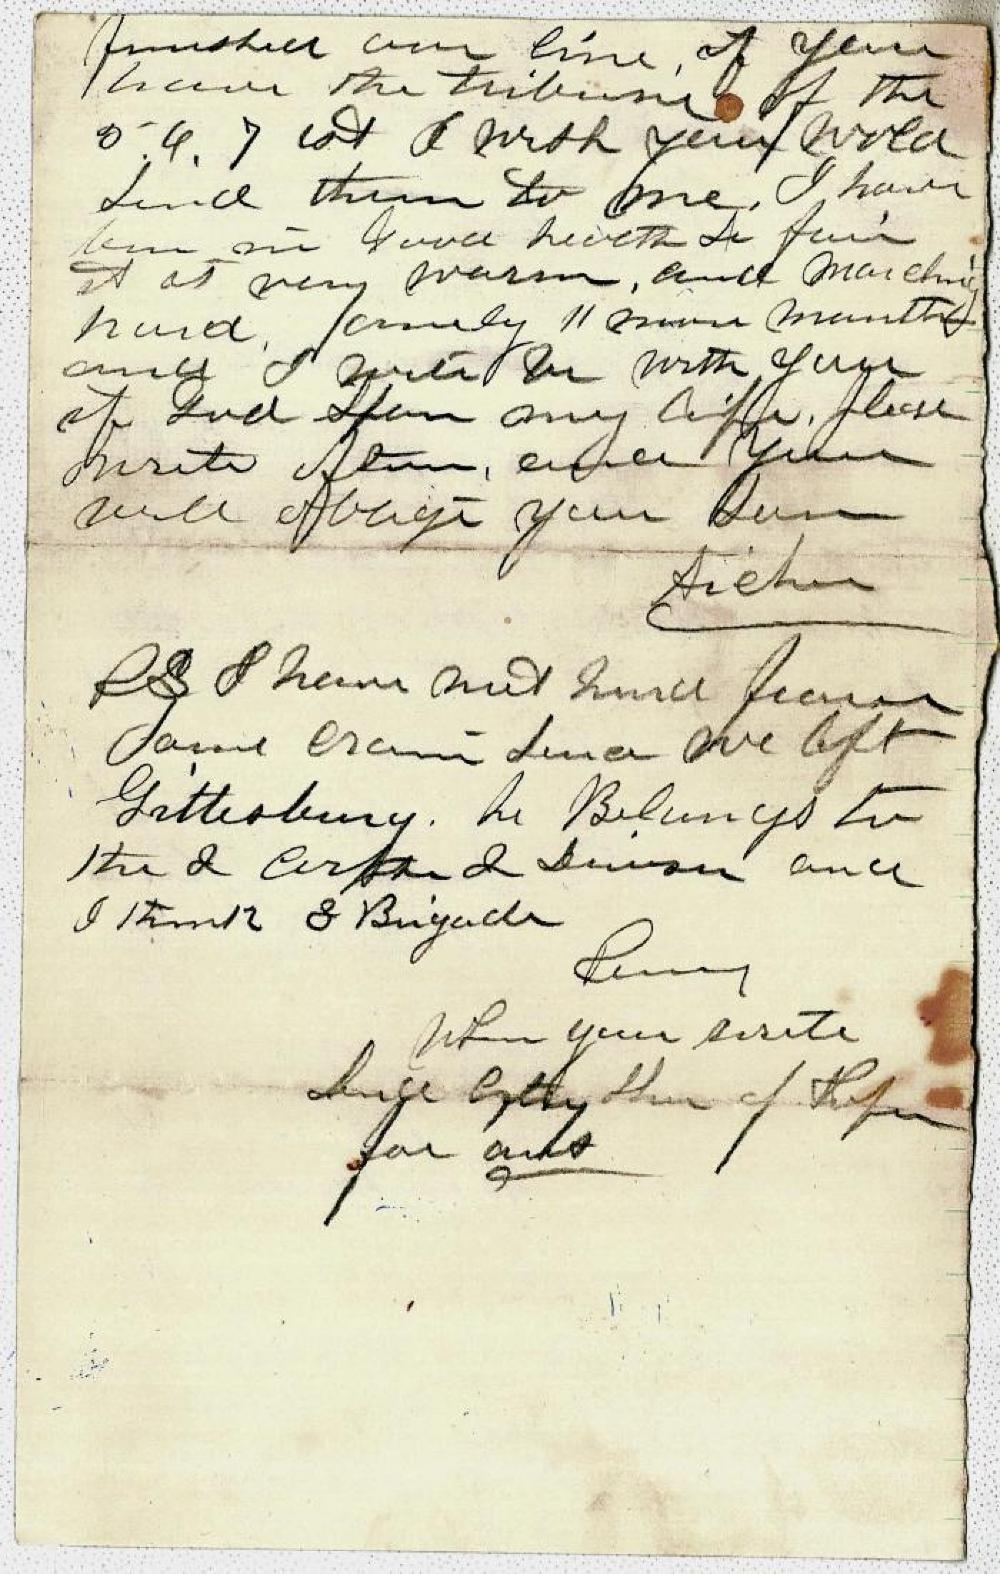 finished our line, if you
have the tribune of the
5. 6. 7 ist I wish you wold
Send them to me. I have
ben in Good heelth so fair
it is very warm, and marching
hard, onely 11 more months
and I will be with you
if God Spair my life. please
write often, and you
will oblige your Son
Archer
PS I have not hurd from
Jame Crain Since we left
Gittesburg. he Belongs to
the 2 Corps 2 Divison and
I think 3 Brigade
when you write
of
for